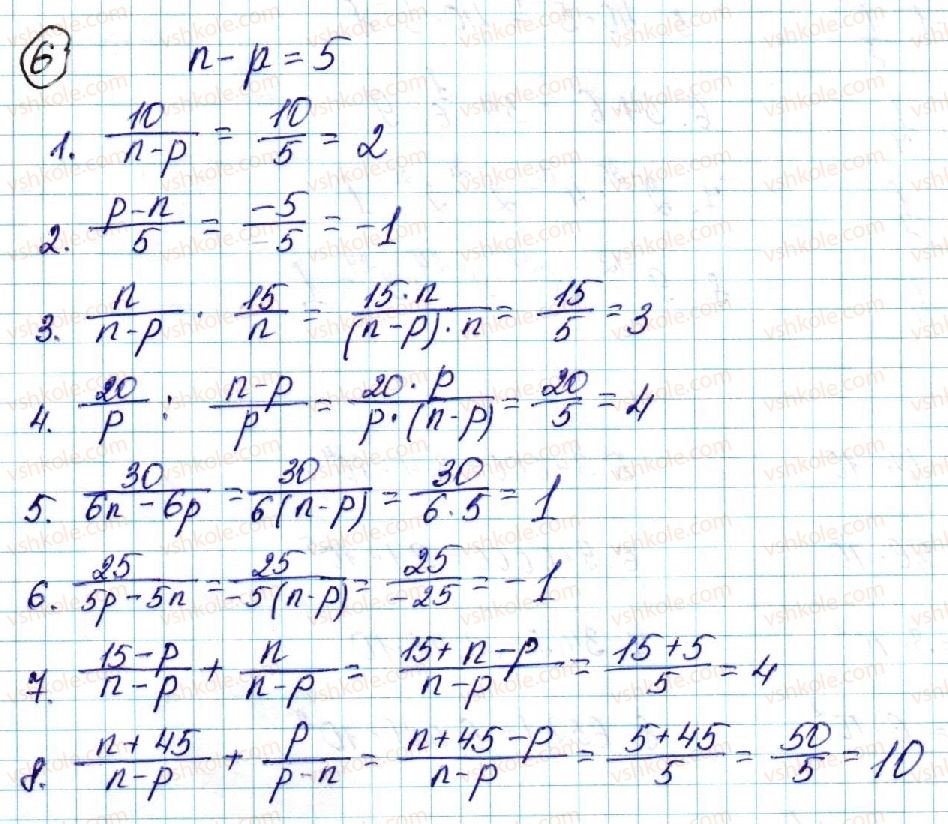 6 n-p=5
1. 10/(n-p) = 10/5 = 2
2. (p-n)/5 = -5/5 = -1
3. n/(n-p) · 15/n = (15·n)/((n-p)·n) = 15/5 = 3
4. 20/p : (n-p)/p = (20·p)/(p·(n-p)) = 20/5 = 4
5. 30/(6n-6p) = 30/(6(n-p)) = 30/(6·5) = 1
6. 25/(5p-5n) = 25/(-5(n-p)) = 25/(-25) = -1
7. (15-p)/(n-p) + n/(n-p) = (15+n-p)/(n-p) = (15+5)/5 = 4
8. (n+45)/(n-p) + p/(p-n) = (n+45-p)/(n-p) = (5+45)/5 = 50/5 = 10
vshkole.com